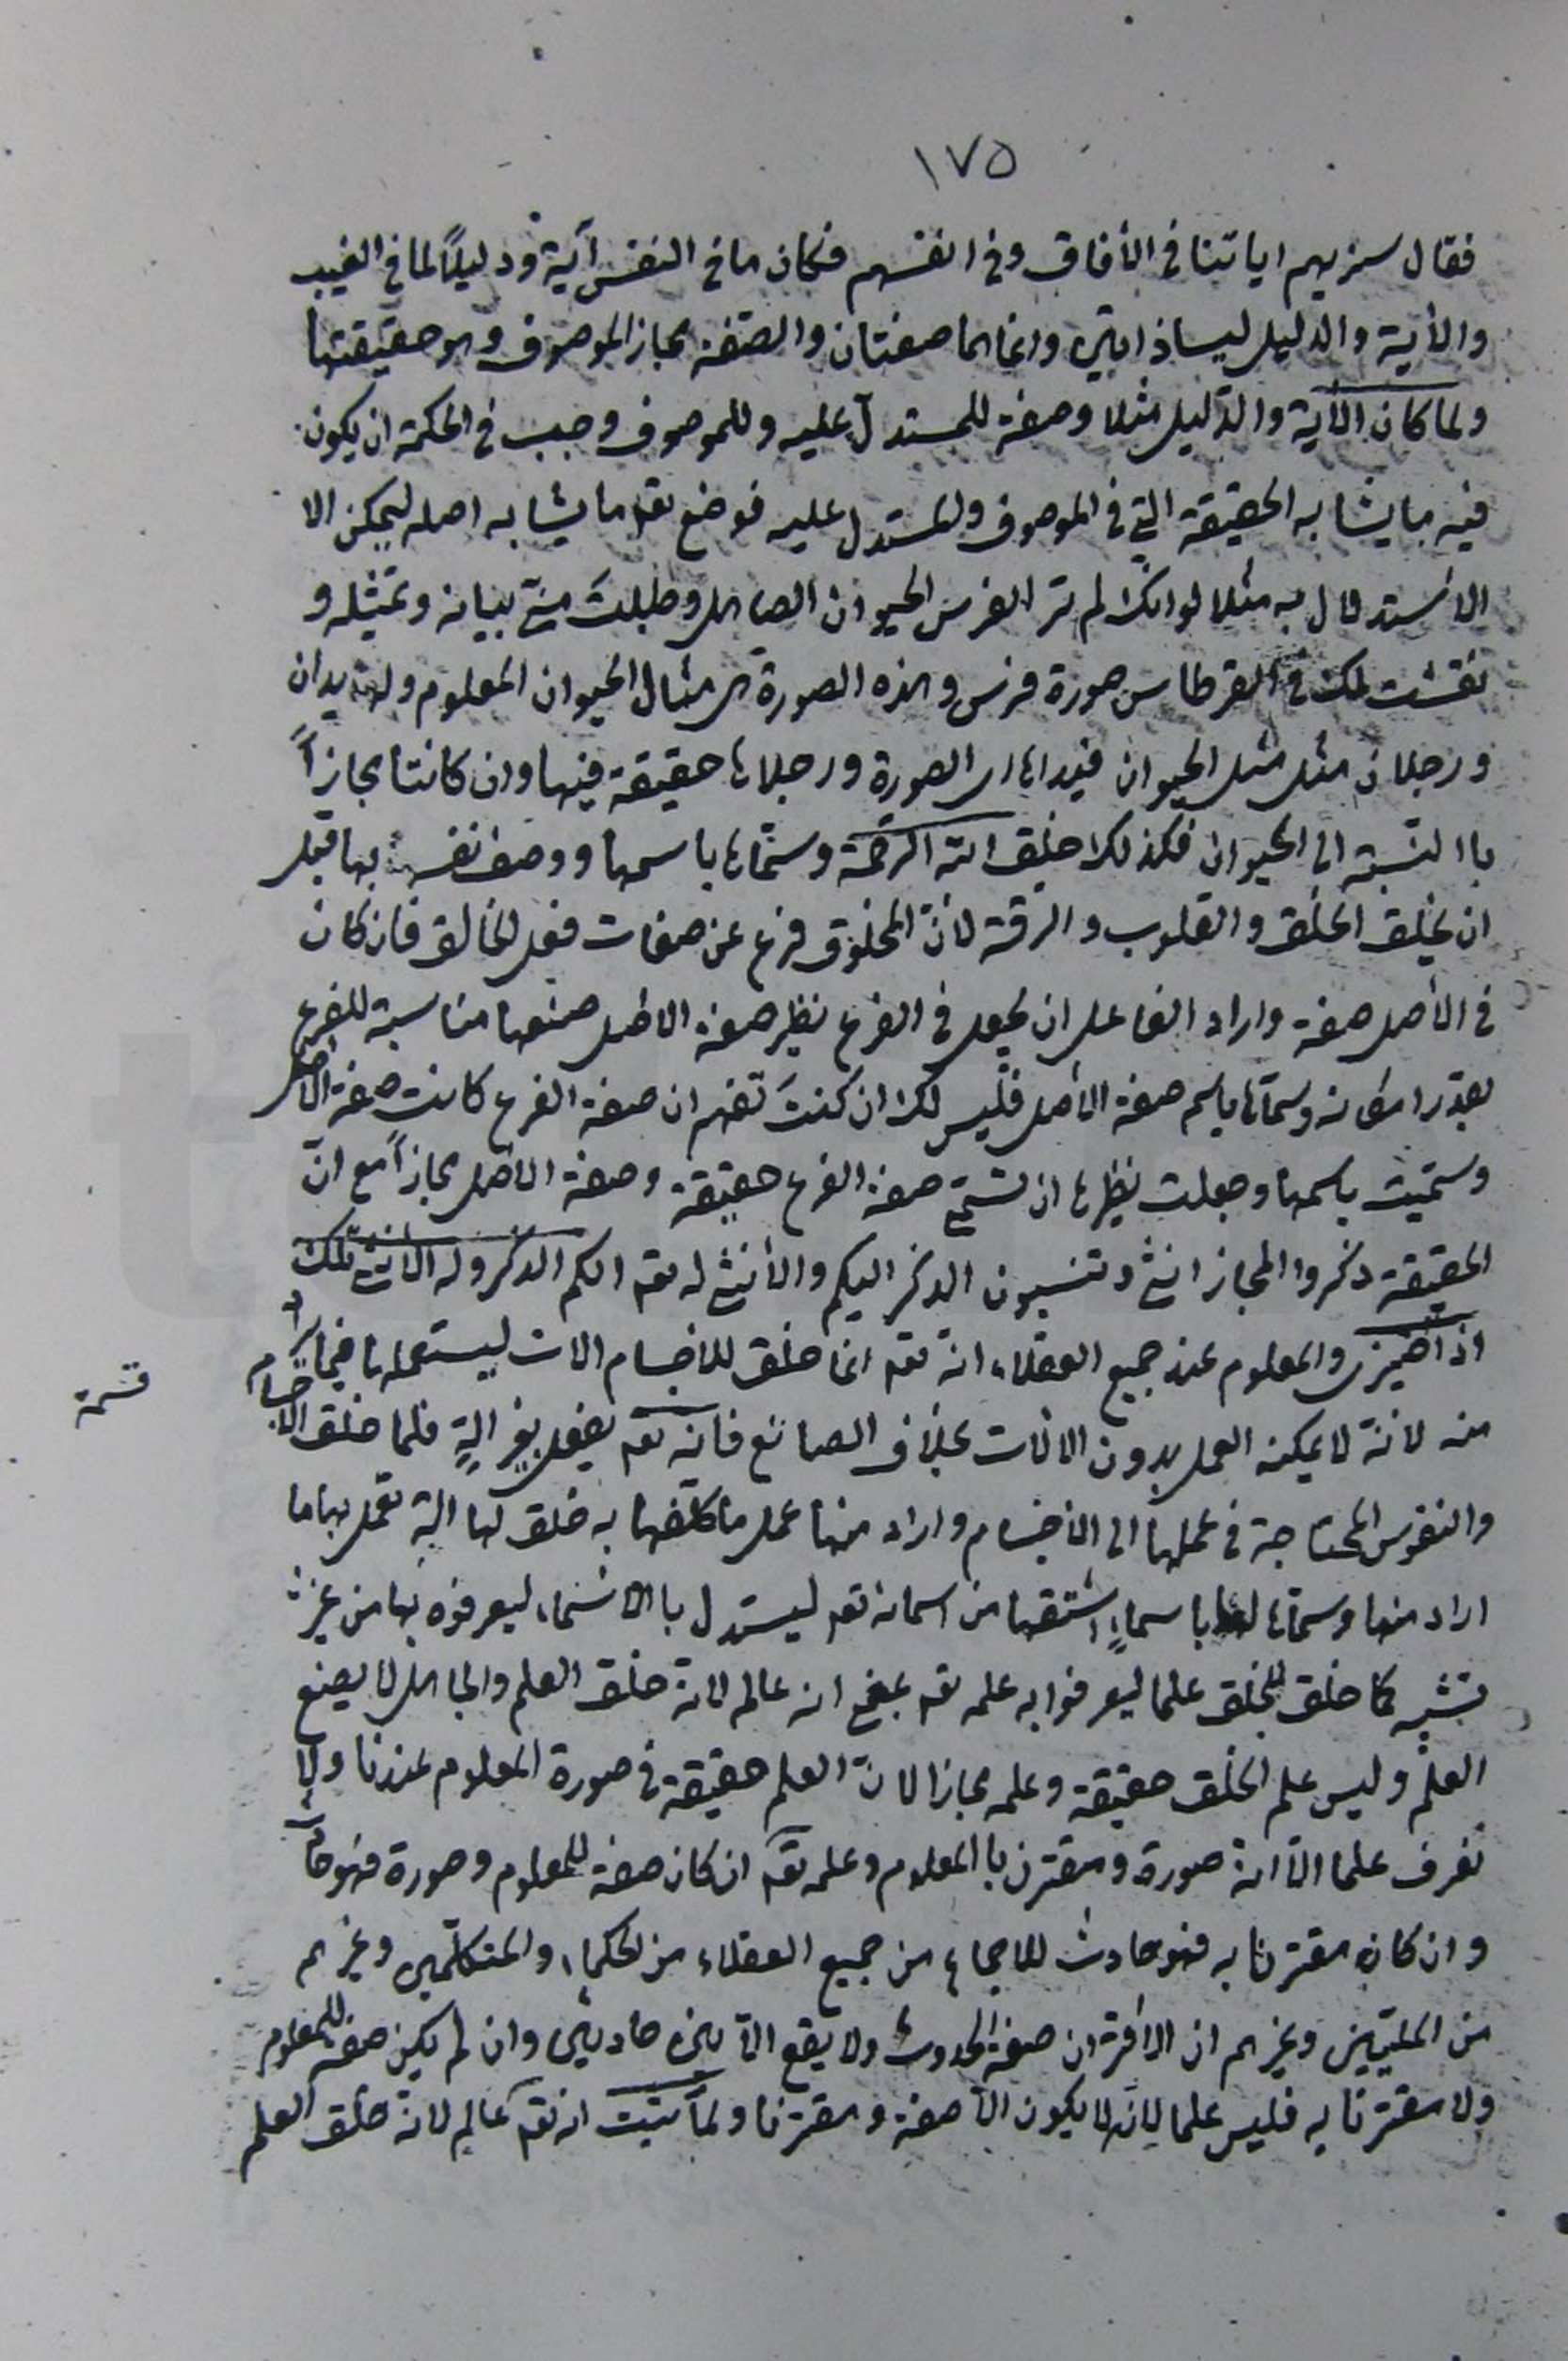 ١٧٥
فقال سنريهم اياتنا في الأفاق وفي انفسهم فكان ما في النفس آية ودليلاً لما في الغيب
والأية والدليل ليسا ذاتين وانما هما صفتان والصّفة مجاز الموصوف وهو حقيقتها
ولما كان الأية والدّليل مثلا وصفة للمستدلّ عليه وللموصوف وجب في الحكمة ان يكون
فيه ما يشابه الحقيقة التي في الموصوف والمستدل عليه فوضع تعه ما يشابه اصله ليمكن الا
الاستدلال به مثلا لو انّك لم تر الفرس الحيوان الصاهل وطلبتَ منّي بيانه وتمثيله و
نقشت لك في القرطاس صورة فرس وهذه الصورة هي مثال الحيوان المعلوم ولها يدان
ورجلان مثل مثل الحيوان فيداها اي الصورة ورجلاها حقيقة فيها وان كانتا مجازاً
باالنّسبة الى الحيوان فكذلك خلق الله الرّحمة وسمّاها باسمها ووصف نفسه بها قبل
ان يخلق الخلق والقلوب والرقّة لانّ المخلوق فرع عن صفات فعل الخالق فان كان
في الأصل صفة واراد الفاعل ان يجعل في الفرع نظير صفة الاصل صنعها مناسبة للفرع
بقدر امكانه وسمّاها باسم صفة الأصل فليس لك ان كنتَ تفهم ان صفة الفرع كانت صفة الأصل
وسمّيت باسمها وجعلت نظيرها ان تسمّي صفة الفرع حقيقة وصفة الاصل مجازاً مع انّ
الحقيقة ذكر والمجاز انثى وتنسبون الذكر اليكم والأنثى له تعه الكم الذكر وله الأنثى تلك
اذا ضيزى والمعلوم عند جميع العقلاء انّه تعه انما خلق للاجسام الات ليستعملها فيما يراد
منه لانّه لا يمكنه العمل بدون الالات بخلاف الصانع فانّه تعه يفعل بغير الةٍ فلما خلق الاجسام
قسمة
والنفوس المحتاجة في عملها الى الأجسام واراد منها عمل ما كلّفها به خلق لها الة تعمل بها ما
اراد منها وسمّاها باسماءٍ اشتقها من اسمائه تعه ليستدل باالاسماء ليعرفوه بها من غير
تشبيه كما خلق للخلق علما ليعرفوا به علمه تعه بمعنى انه عالم لانّه خلق العلم والجاهل لا يصنع
العلم وليس علم الخلق حقيقة وعلمه مجازا لانّ العلم حقيقة في صورة المعلوم عندنا ولا
نعرف علما الّا انّه صورة ومقترن باالمعلوم وعلمه تعه ان كان صفة للمعلوم وصورة فهو حادث
وان كان مقترنا به فهو حادث للاجماع من جميع العقلاء من الحكماء والمتكلّمين وغيرهم
من المليّين وغيرهم ان الاقتران صفة الحدوث ولا يقع الّا بين حادثين وان لم يكن صفة للمعلوم
ولا مقترنا به فليس علما لانّه لا يكون الّا صفة ومقترنا ولمّا ثبت انه تعه عالم لانّه خلق العلم